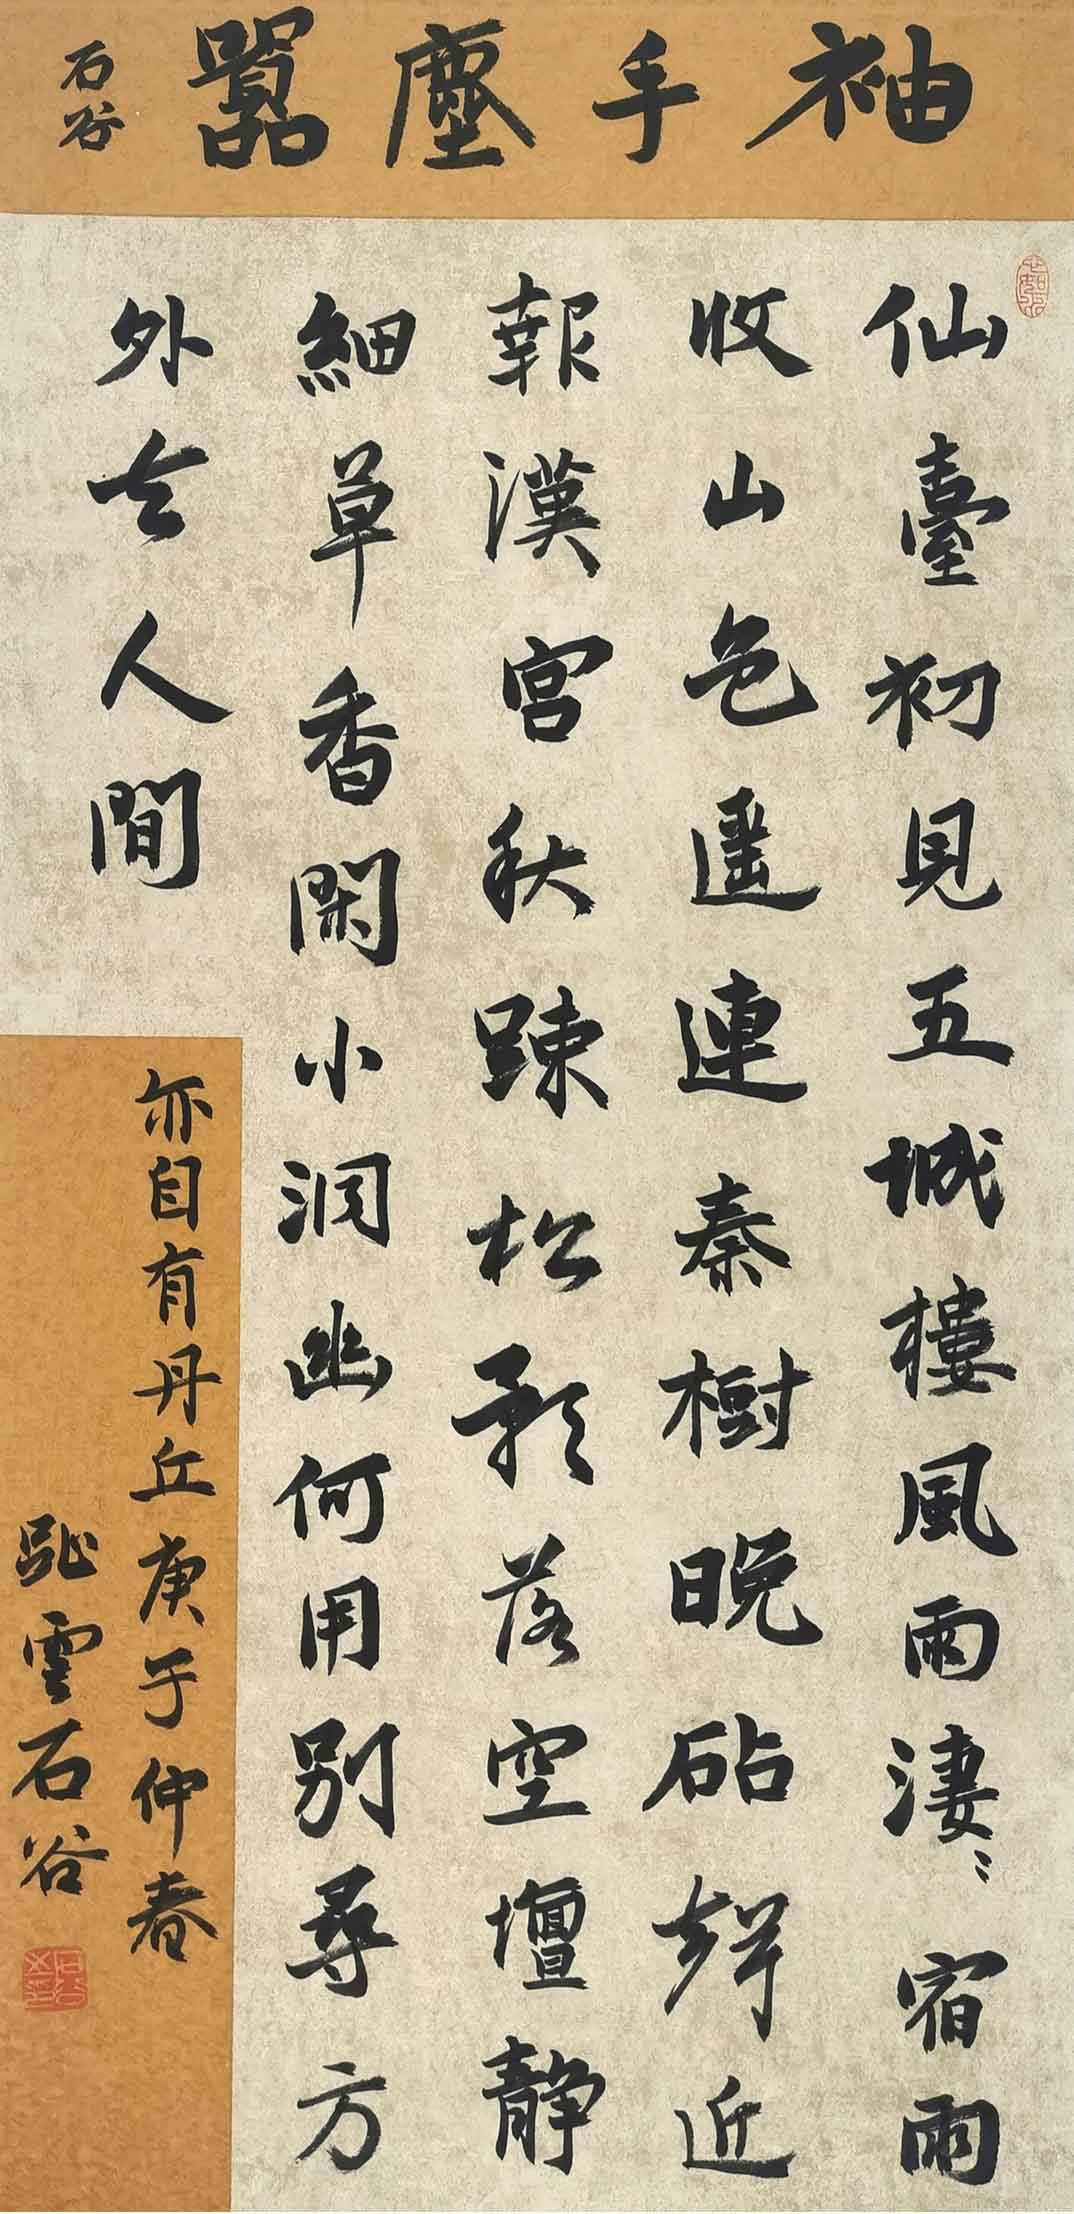 袖手塵囂
石谷
仙臺初見五城樓風雨淒〻宿雨
收山色遥連秦樹晚砧聲近
報漢宮秋踈松影落空壇靜
細草香閑小洞幽何用別尋方
外去人間
亦自有丹丘庚子仲春
雲石谷